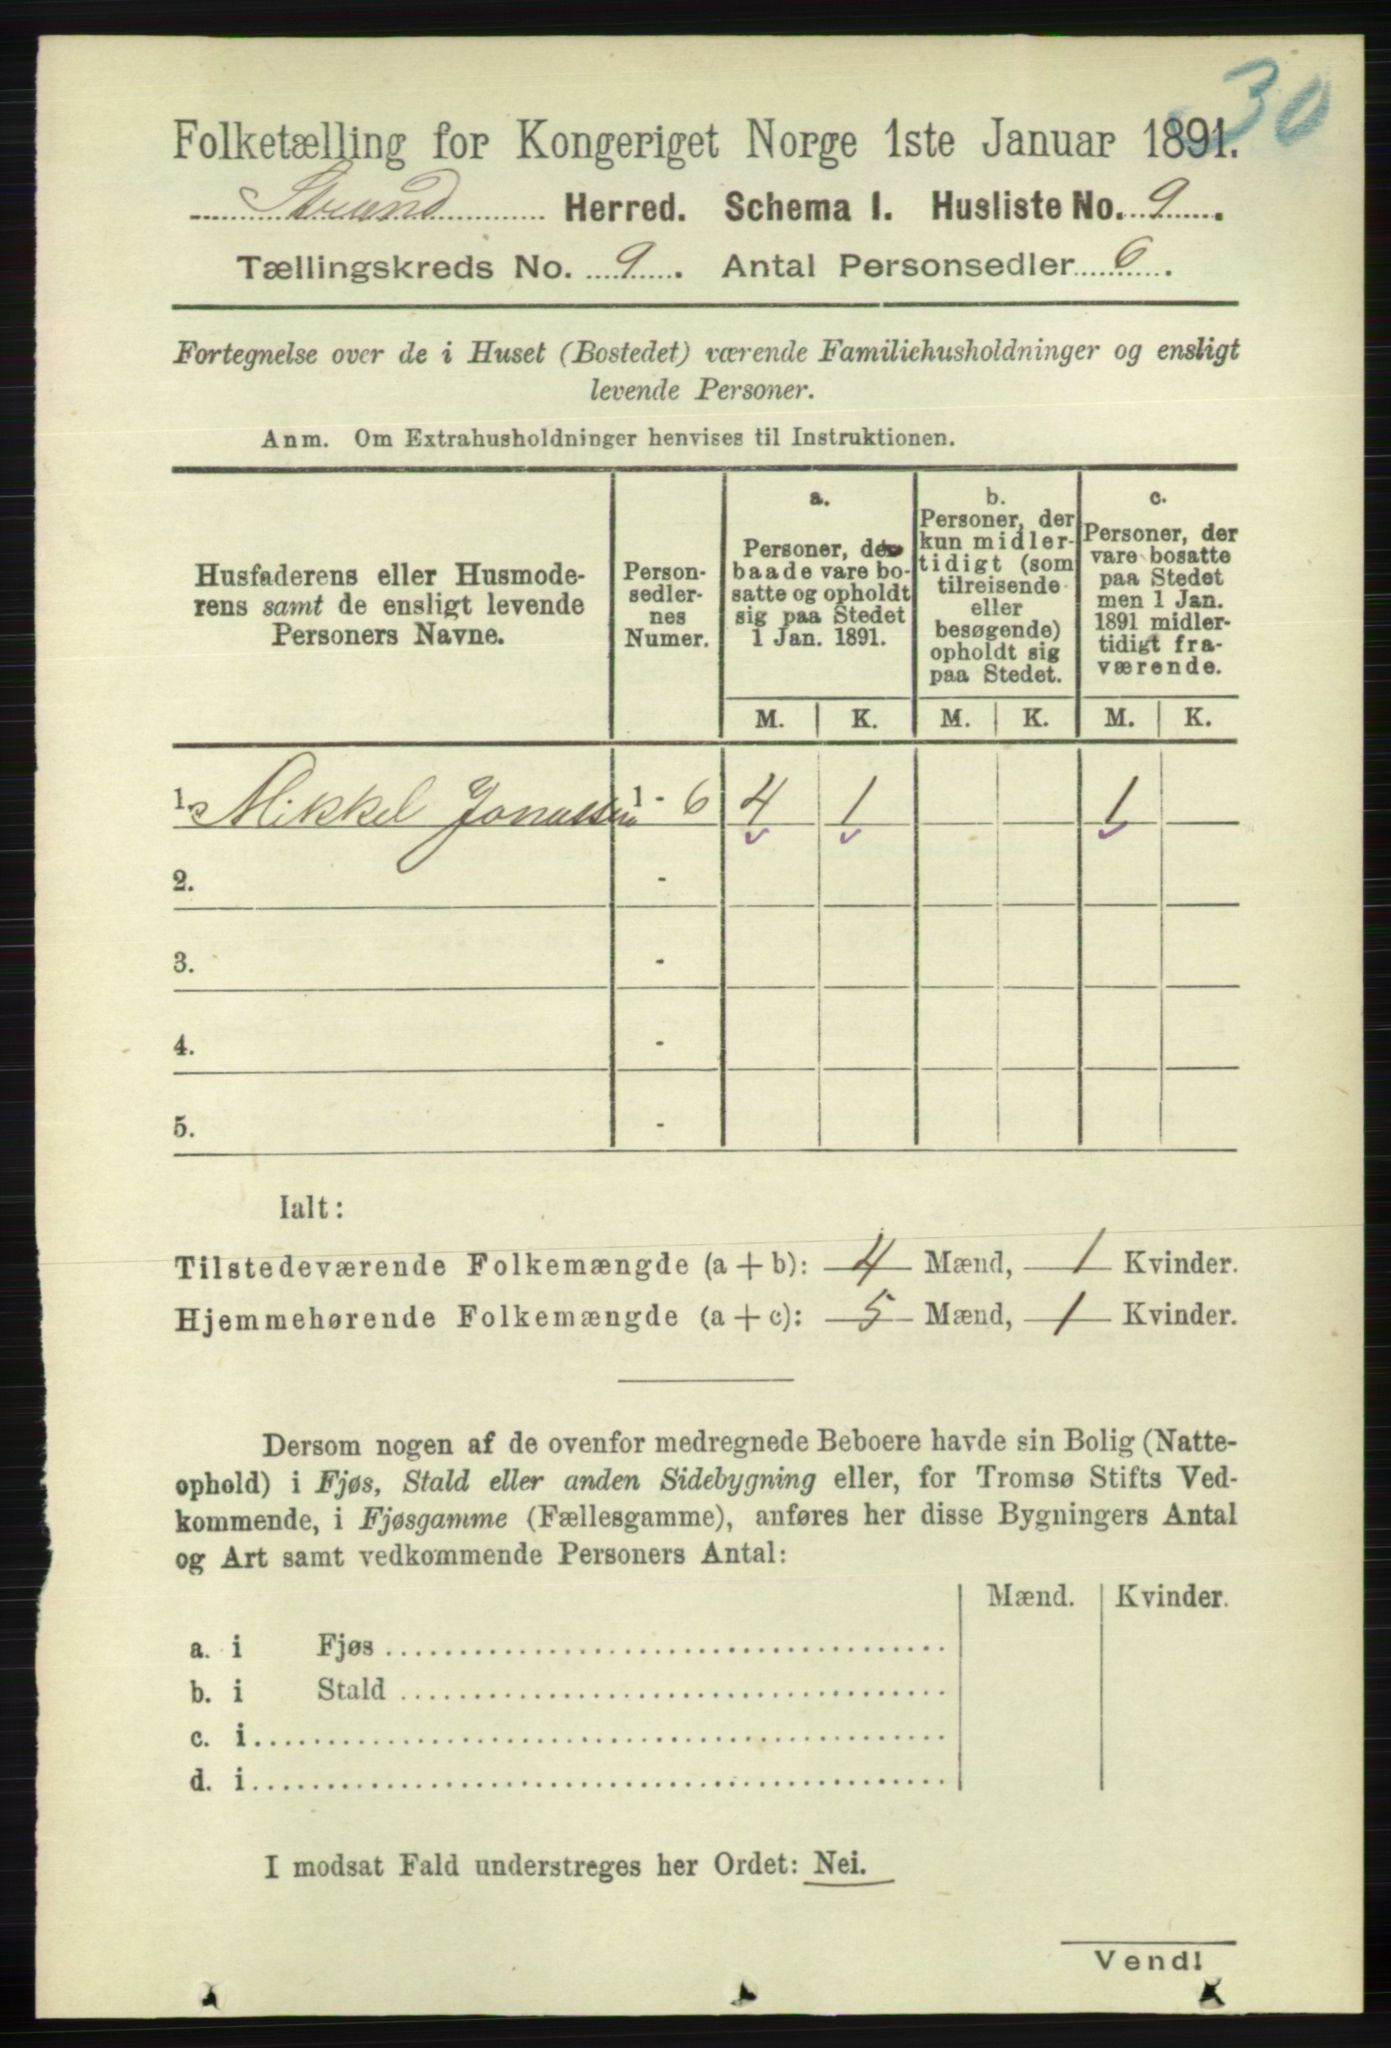 30
Folketælling for Kongeriget Norge 1ste Januar 1891.
Strand Herred. Schema I. Husliste No. 9.
Tællingskreds No. 9. Antal Personsedler 6.
Fortegnelse over de i Huset (Bostedet) værende Familiehusholdninger og ensligt
levende Personer.
Anm. Om Extrahusholdninger henvises til Instruktionen.
Husfaderens eller Husmode-
rens samt de ensligt levende
Personers Navne.
Person-
sedler-
nes
Numer.
a.
Personer, der
baade vare bo-
satte og opholdt
sig paa Stedet
1 Jan. 1891.
b.
Personer, der
kun midler-
tidigt (som
tilreisende
eller
besøgende)
opholdt sig
paa Stedet.
c.
Personer, der
vare bosatte
paa Stedet
men 1 Jan.
1891 midler-
tidigt fra-
værende.
M. K. M. K. M. K.
1. Mikkel Jonassen 1 - 6 4 1 1
2. -
3. -
4. -
5. -
Ialt:
Tilstedeværende Folkemængde (a + b): 4 Mænd, 1 Kvinder.
Hjemmehørende Folkemængde (a + c): 5 Mænd, 1 Kvinder.
Dersom nogen af de ovenfor medregnede Beboere havde sin Bolig (Natte-
ophold) i Fjøs, Stald eller anden Sidebygning eller, for Tromsø Stifts Ved-
kommende, i Fjøsgamme (Fællesgamme), anføres her disse Bygningers Antal
og Art samt vedkommende Personers Antal:
Mænd. Kvinder.
a. i Fjøs
b. i Stald
c. i
d. i
I modsat Fald understreges her Ordet: Nei.
Vend!